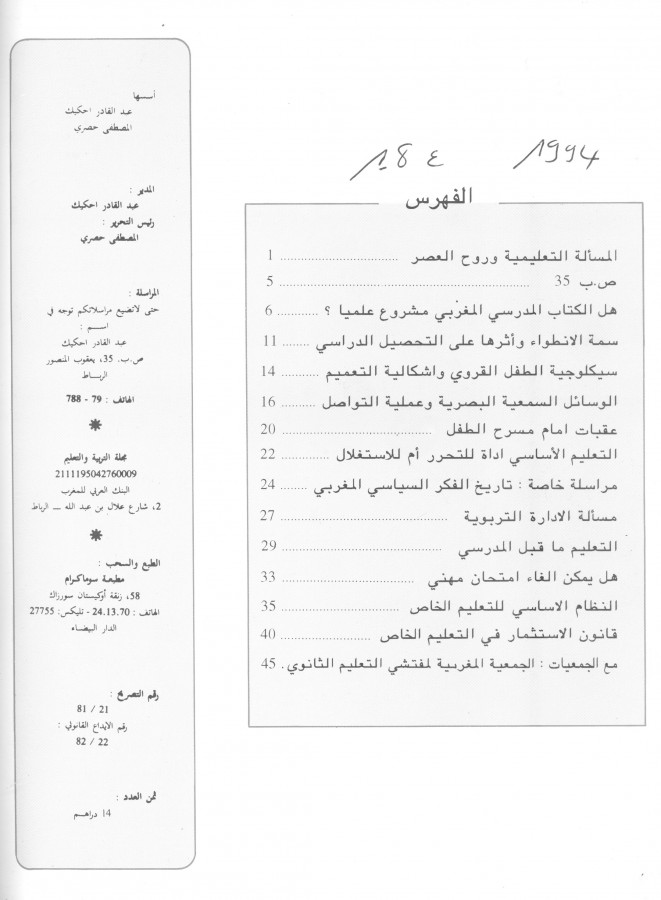 أسسها
عبد القادر احكيك
المصطفى حصري
المدير :
عبد القادر احكيك
رئيس التحرير :
المصطفى حصري
المراسلة :
حتى لاتضيع مراسلاتكم توجه في
اسم :
عبد القادر احكيك
ص.ب. 35، يعقوب المنصور
الرباط
الهاتف : 79 - 788
مجلة التربية والتعليم
2111195042760009
البنك العربي للمغرب
2، شارع علال بن عبد الله ــ الرباط
الطبع والسحب :
مطبعة سوماكرام
58، زنقة أوكيستان سورزاك
الهاتف : 24.13.70 - تليكس: 27755
الدار البيضاء
رقم التصريح :
21 / 81
رقم الايداع القانوني :
22 / 82
ثمن العدد :
14 درهم
18 ع 1994
الفهرس
المسألة التعليمية وروح العصر 1
ص.ب 35 5
هل الكتاب المدرسي المغربي مشروع علميا ؟ 6
سمة الانطواء وأثرها على التحصيل الدراسي 11
سيكلوجية الطفل القروي واشكالية التعميم 14
الوسائل السمعية البصرية وعملية التواصل 16
عقبات امام مسرح الطفل 20
التعليم الأساسي اداة للتحرر أم للاستغلال 22
مراسلة خاصة : تاريخ الفكر السياسي المغربي 24
مسألة الادارة التربوية 27
التعليم ما قبل المدرسي 29
هل يمكن الغاء امتحان مهني 33
النظام الاساسي للتعليم الخاص 35
قانون الاستثمار في التعليم الخاص 40
مع الجمعيات : الجمعية المغربية لمفتشي التعليم الثانوي . 45